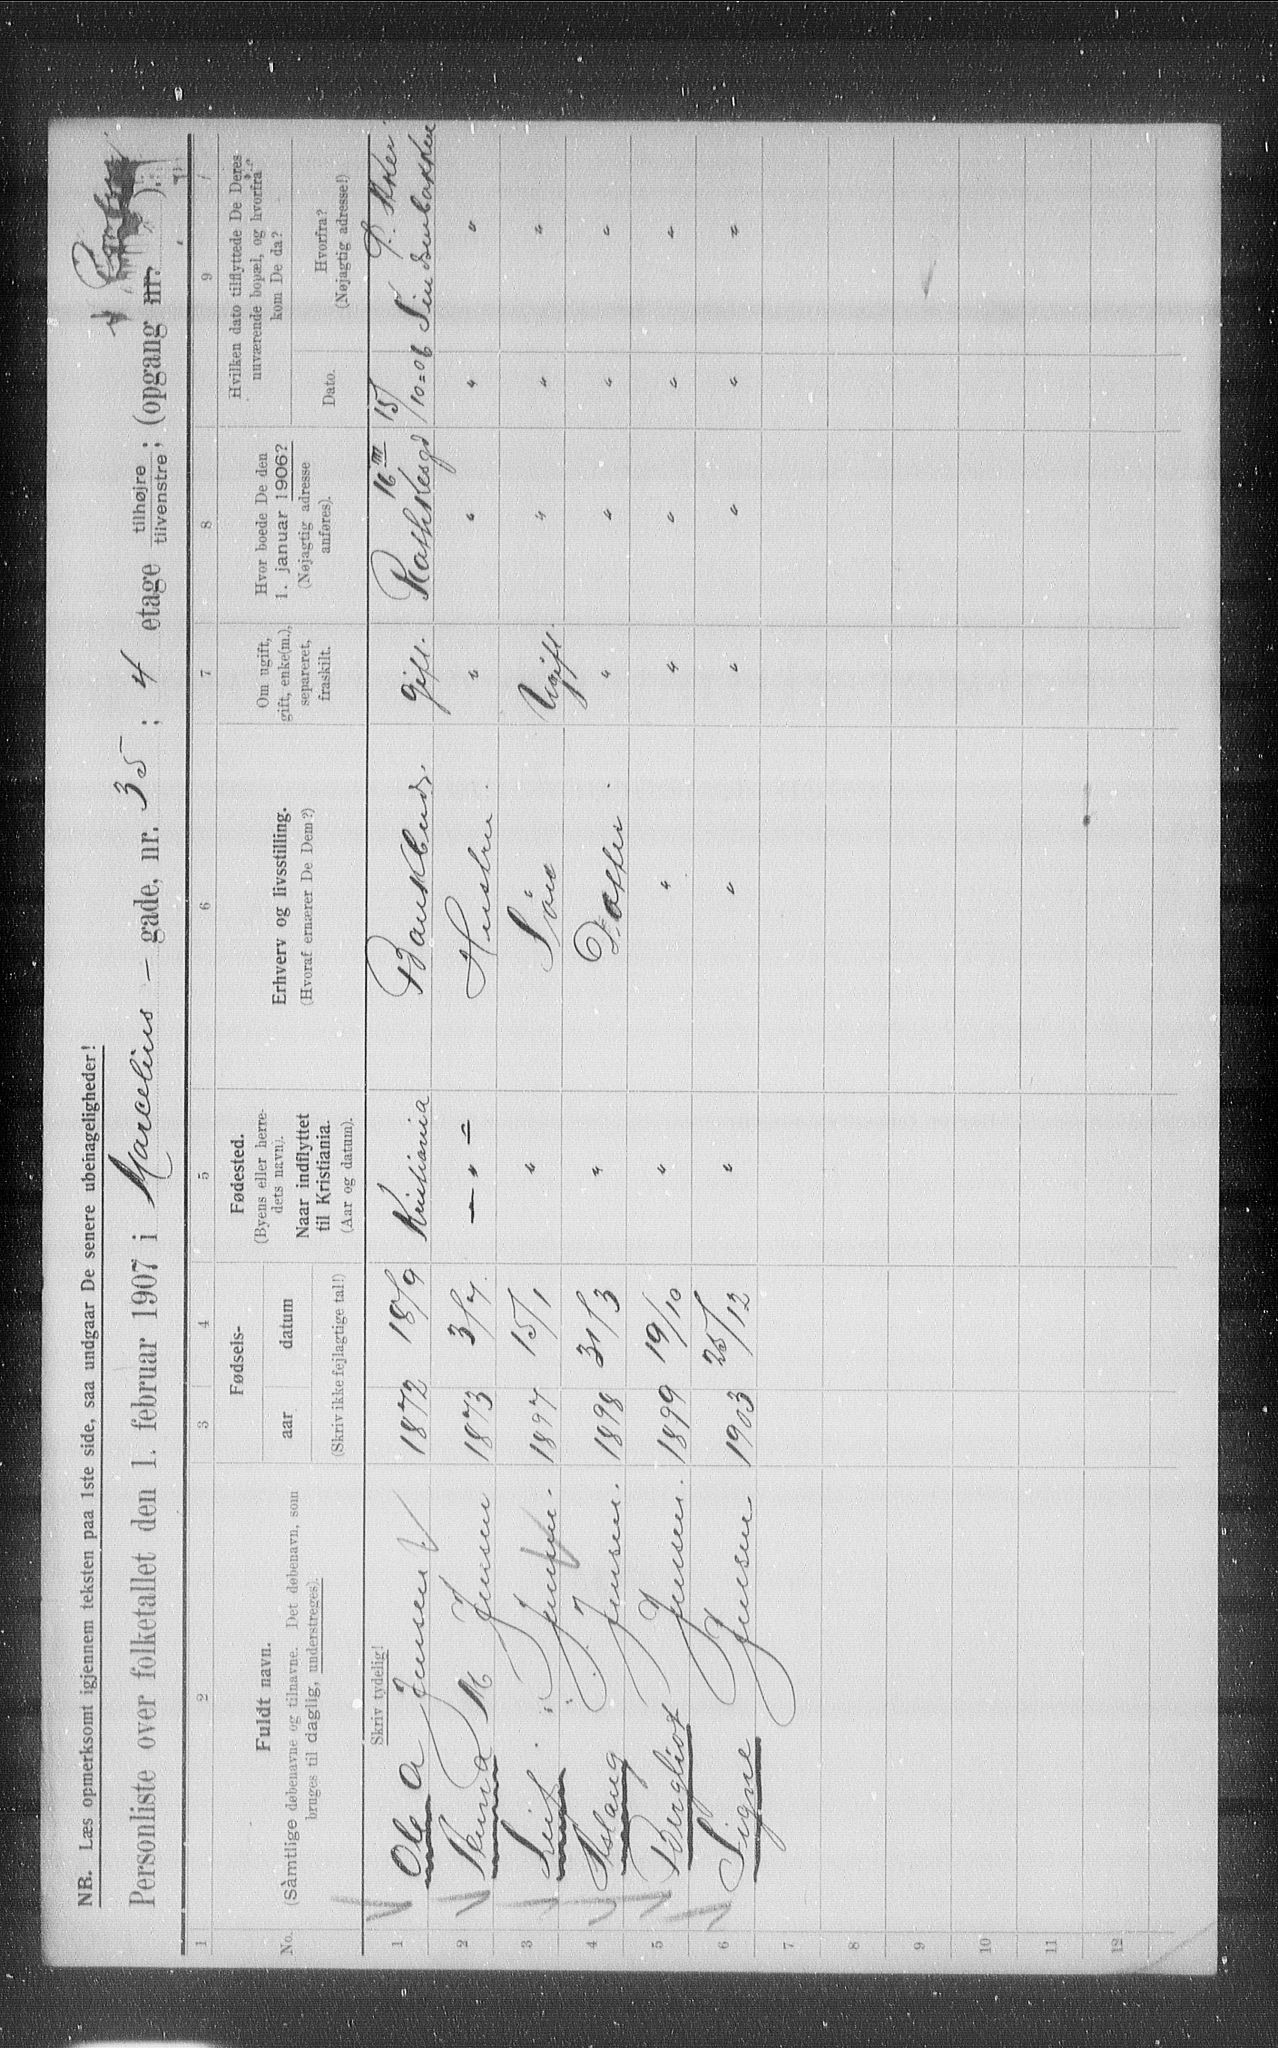 NB. Læs opmerksomt igjennem teksten paa 1ste side, saa undgaar De senere ubehageligheder!
Personliste over folketallet den 1. februar 1907 i Marcelius - gade, nr. 35 ; 4 etage tilhøjre / tilvenstre ; (opgang nr. ).
1 2 3 4 5 6 7 8 9
No.
Fuldt navn.
(Samtlige døbenavne og tilnavne. Det døbenavn, som
bruges til daglig, understreges).
Fødsels-
aar datum
(Skriv ikke fejlagtige tal!)
Fødested.
(Byens eller herre-
dets navn).
Naar indflyttet
til Kristiania.
(Aar og datum).
Erhverv og livsstilling.
(Hvoraf ernærer De Dem?)
Om ugift,
gift, enke(m.),
separeret,
fraskilt.
Hvor boede De den
1. januar 1906?
(Nøjagtig adresse
anføres).
Hvilken dato tilflyttede De Deres
nuværende bopæl, og hvorfra
kom De da?
Dato.
Hvorfra?
(Nøjagtig adresse!)
Skriv tydelig!
1 Ole A Jensen 1872 18/9 Kristiania Bankbud. gift. Rathkesgd 16 III 15/10=06 Aker
2 M Jensen 1873 3/7 — " — Hustru. " " " "
3 Leif. 1897 15/1 " Søn Ugift. " " "
4 Aslaug J. Jensen. 1898 31/3 " Datter. " " " "
5 Bergliot Jensen. 1899 19/10 " " " " " "
6 Signe Jensen 1903 25/12 " " " " " "
7
8
9
10
11
12